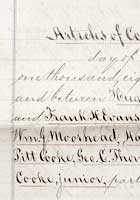 Articles of Co
day of
one thousand, eig
and between Hen
and Frank H. Evans
Wm. G. Moorhead,
Pitt Cooke, Geo. C. Tho
Cooke, junior, part